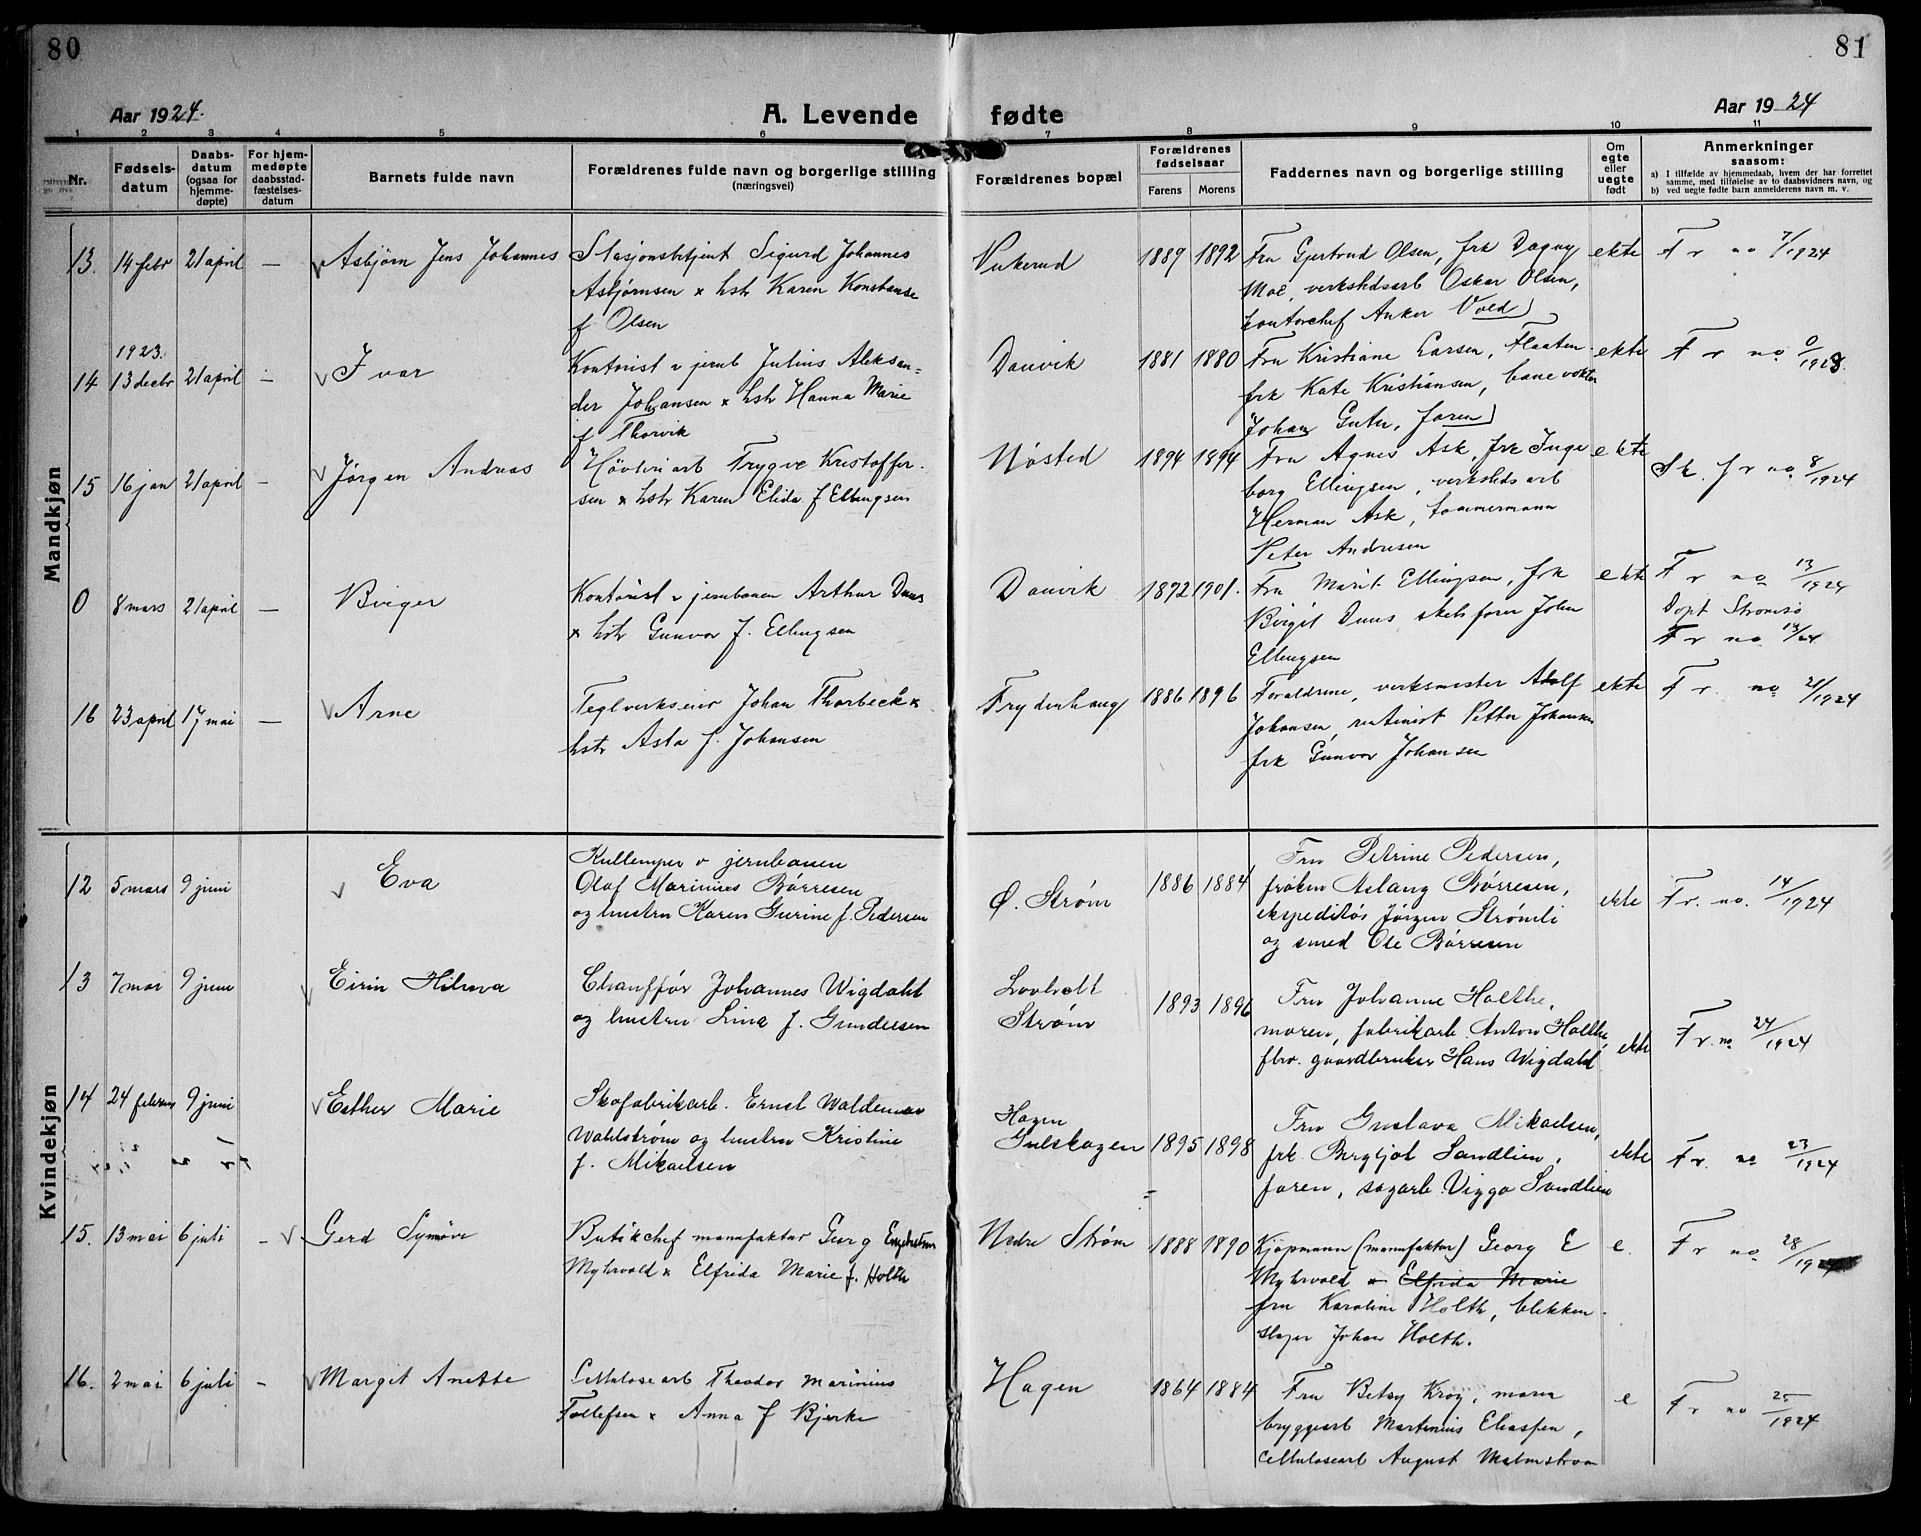 80
81
Aar 1924.
A. Levende
fødte
Aar 1924
1 2 3 4 5 6 7 8 9 10 11
Nr.
Fødsels-
datum
Daabs-
datum
(ogsaa for
hjemme-
døpte)
For hjem-
medøpte
daabsstad-
fæstelses-
datum
Barnets fulde navn
Forældrenes fulde navn og borgerlige stilling
(næringsvei)
Forældrenes bopæl
Forældrenes
fødselsaar
Farens Morens
Faddernes navn og borgerlige stilling
Om
egte
eller
uegte
født
Anmerkninger
saasom:
a) I tilfælde av hjemmedaab, hvem der har forrettet
samme, med tilføielse av to daabsvidners navn, og
b) ved uegte fødte barn anmelderens navn m. v.
Mandkjøn
13. 14 febr 21 april — Asbjørn Jens Johannes
Stasjonsbetjent Sigurd Johannes
Asbjørnsen x hstr Karen Konstanse
f Olsen
1889 1892
Fru Gjertrud Olsen, frk Dagny
Moe, verkstedsarb Oskar Olsen,
kontorchef Anker Vold
ekte
Fr no 7/1924
1923.
14 13 decbr 21 april — Ivar
Kontorist v jernb Julius Aleksan-
der Johansen x hstr Hanna Marie
f Thorvik
Danvik
1881 1880
Fru Kristiane Larsen, Flaaten
frk Kate Kristiansen, banevokter
Johan Guter, faren
ekte
Fr no 0/1923.
15 16 jan 21 april — Jørgen Andreas
Høvleriarb Trygve Kristoffer-
sen x hstr Karen Elida f Ellingsen
Nøsted
1894 1894
Fru Agnes Ask, frk Inge
borg Ellingsen, verkstedsarb
Herman Ask, tømmermann
Peter Andresen
ekte
Sk. fr no 8/1924
0 8 mars 21 april — Birger
Kontorist v jernbanen Arthur Duus
x hstr Gunvor f. Ellingsen
Danvik
1872 1901.
Fru Marit Ellingsen, frk
Birgit Duus, Johan
Ellingsen
ekte
Fr no 13/1924
Døpt Strømsø
Fr no 13/24
16 23 april 17 mai — Arne
Teglverkseier Johan Thorbeck x
hstr Asta f. Johansen
Frydenhaug
1886 1896
Foreldrene, verksmester Adolf
Johansen, Petter Johansen
frk Gunvor Johansen
ekte
Fr. no 21/1924
Kvindekjøn
12 5 mars 9 juni Eva
Kullemper v jernbanen
Olaf Marinius Børresen
og hustru Karen Gurine f. Pedersen
Ø. Strøm
1886 1884
Fru Petrine Pedersen,
frøken Aslaug Børresen,
ekspeditør Jørgen Strømli
og smed Ole Børresen
ekte
Fr. no. 14/1924
13 7 mai 9 juni Eirin Hilma
Chauffør Johannes Wigdahl
og hustru Lina f. Gundersen
Strøm
1893 1896
Fru Johanne Holthe,
moren, fabrikarb. Anton Holthe,
fhv. gaardbruker Hans Wigdahl
ekte
Fr. no 24/1924
14 24 februar 9 juni Esther Marie
Skofabrikarb. Ernst Waldemar
Wahlstrøm og hustru Kristine
f. Mikaelsen
Hagen
Gulskogen
1895 1898
Fru Gustava Mikaelsen,
frk. Bergljot Sandlien,
faren, sagarb. Viggo Sandlien
ekte
Fr. no 23/1924
15. 13 mai 6 juli — Gerd Synnøve
Butikchef manufaktur Georg
Myhrvold x Elfrida Marie f. Holth
Nedre Strøm
1888 1890
Kjøpmann (manufaktur) Georg E
Myhrvold x Elfrida Marie
fru Karoline Holth, blikken-
slager Johan Holth.
e.
Fr no 28/1924
16. 2 mai 6 juli — Margit Anette
Cellulosearb Theodor Marinius
Tollefsen x Anna f Bjerke
Hagen
1864 1884
Fru Betsy Krog, moren
bryggearb Martinius Eliassen,
cellulosearb August Malmstrøm
e
Fr no 25/1924